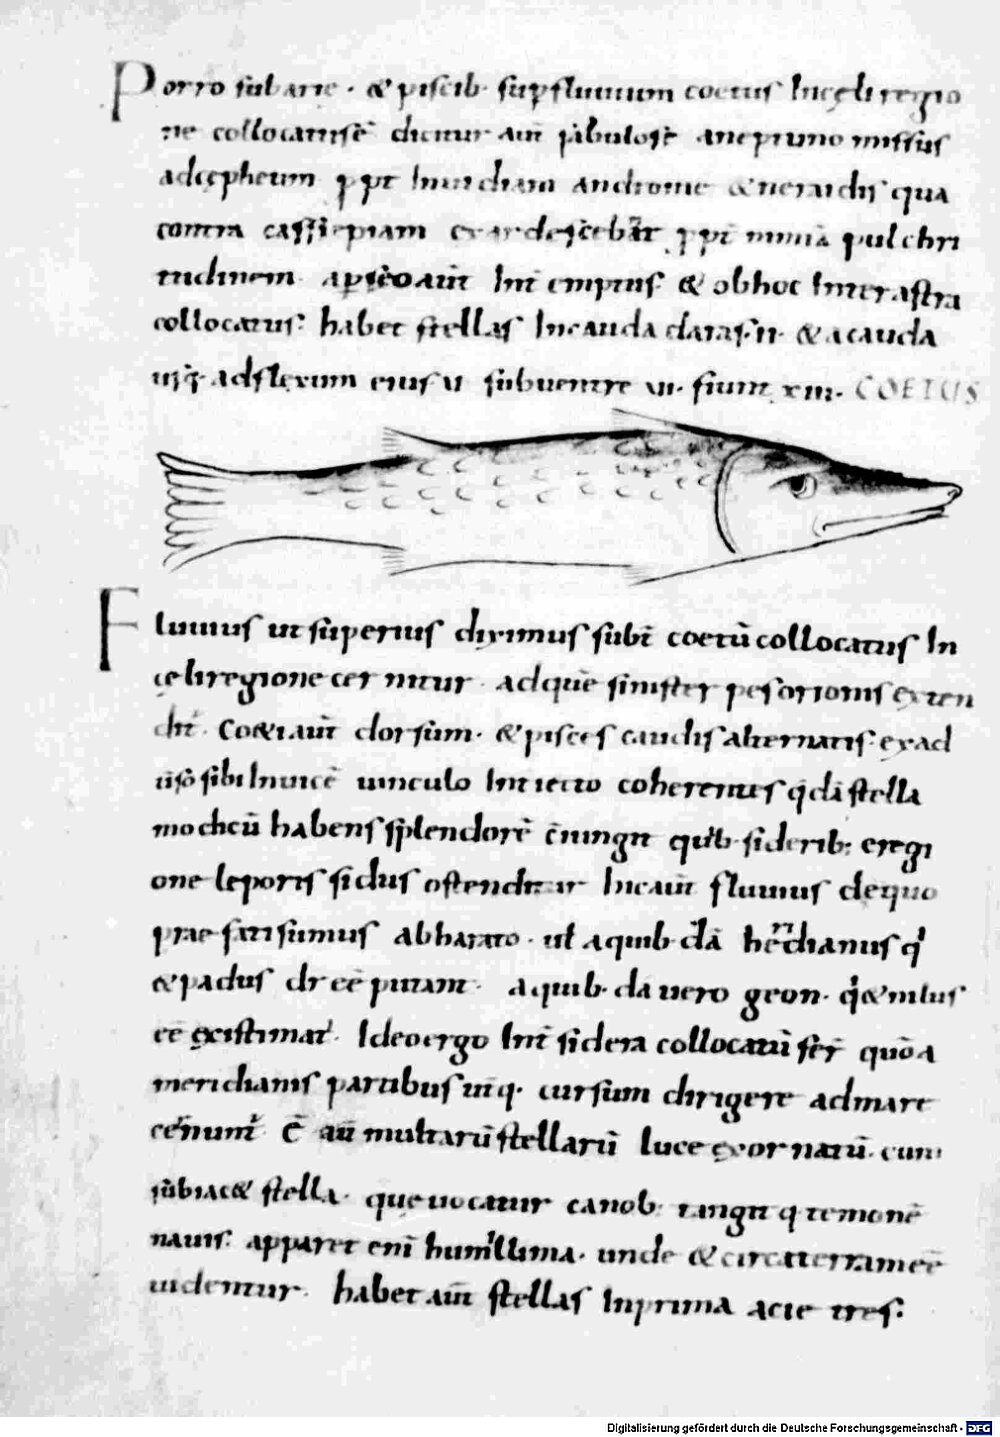 Porro sub arie · & piscib· sup flumium coetus In cęli regio
ne collocatus ē dicitur aut̄ fabulose a neptuno missus
ad cępheum ppt Inuidiam andromę & nereidis qua
contra cassiepiam exardescebat ppt nimiā pulchri
tudinem · a pseo aūt Int emptus· & ob hoc Inter astra
collocatus· habet stellas In cauda claras · II · & a cauda
usq· ad flexum eius V sub uentre VI · fiunt XIII · COETUS
Fluuius ut superius diximus subt̄ coetū collocatus In
cęli regione cernitur · ad quē sinister pes orionis exten
dit̄ · Coeti aūt dorsum · & pisces caudis alternatis · ex ad
uso sibi Inuicē uinculo Int iecto coherentes qdā stella
modicū habens splendorē c̄iungit quib· siderib: e regi
one leporis sidus ostenditur In eaūt fluuius de quo
prae fati sumus ab harato · ut̄ a quib·dā herdianus q
& padus dr eē putam · a quib·da uero geon · q & nilus
eē existimat̄ · Ideo ergo Int̄ sidera collocatū fer̄ quō a
meridianis partibus uiq· cursum dirigere ad mare
cernunt̄ · Ē aū multarū stellarū luce exornatū · cum
subiac& stella · que uocatur canob· tangit q temonē
nauis· apparet enī humillima · unde & circa terram eē
uidentur · habet aūt stellas In prima acie tres·
Digitalisierung gefördert durch die Deutsche Forschungsgemeinschaft - DFG